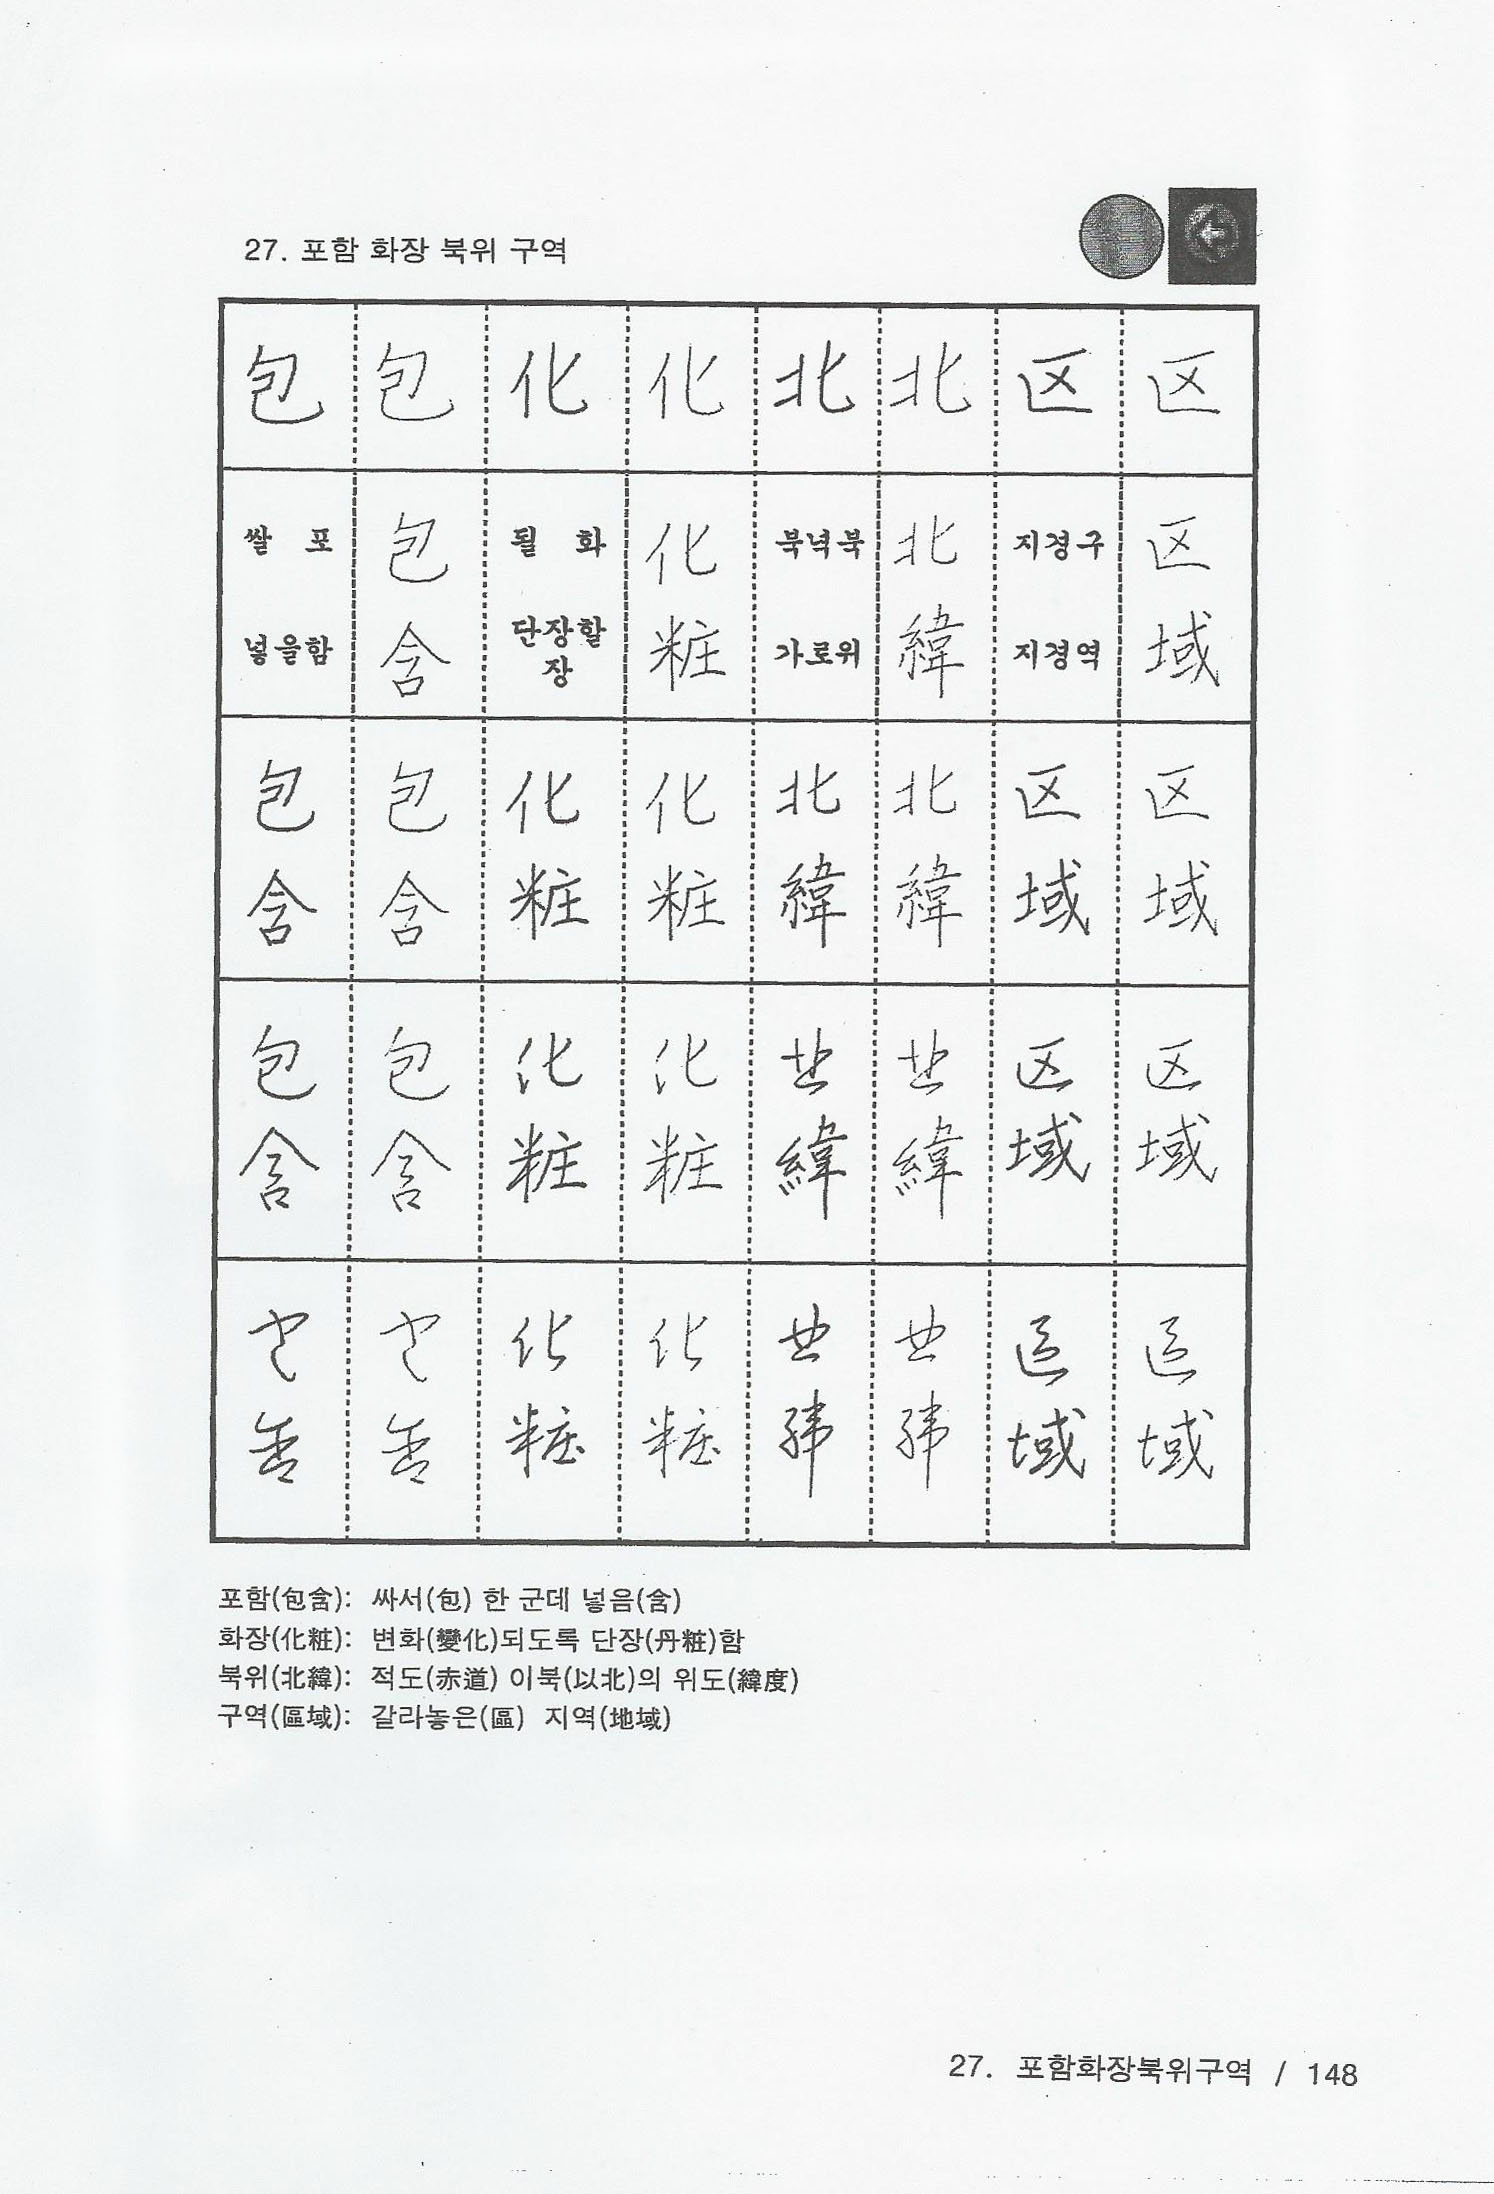 27. 포함 화장 북위 구역
包 包 化 化 北 北 区 区
쌀 포 包 될 화 化 북녘북 北 지경구 区
넣을함 含 단장할 장 粧 가로위 緯 지경역 域
包 包 化 化 北 北 区 区
含 含 粧 粧 緯 緯 域 域
包 包 化 化 北 北 区 区
含 含 粧 粧 緯 緯 域 域
包 包 化 化 北 北 區 區
含 含 粧 粧 緯 緯 域 域
포함(包含): 싸서(包) 한 군데 넣음(含)
화장(化粧): 변화(變化)되도록 단장(丹粧)함
북위(北緯): 적도(赤道) 이북(以北)의 위도(緯度)
구역(區域): 갈라놓은(區) 지역(地域)
27. 포함화장북위구역 / 148